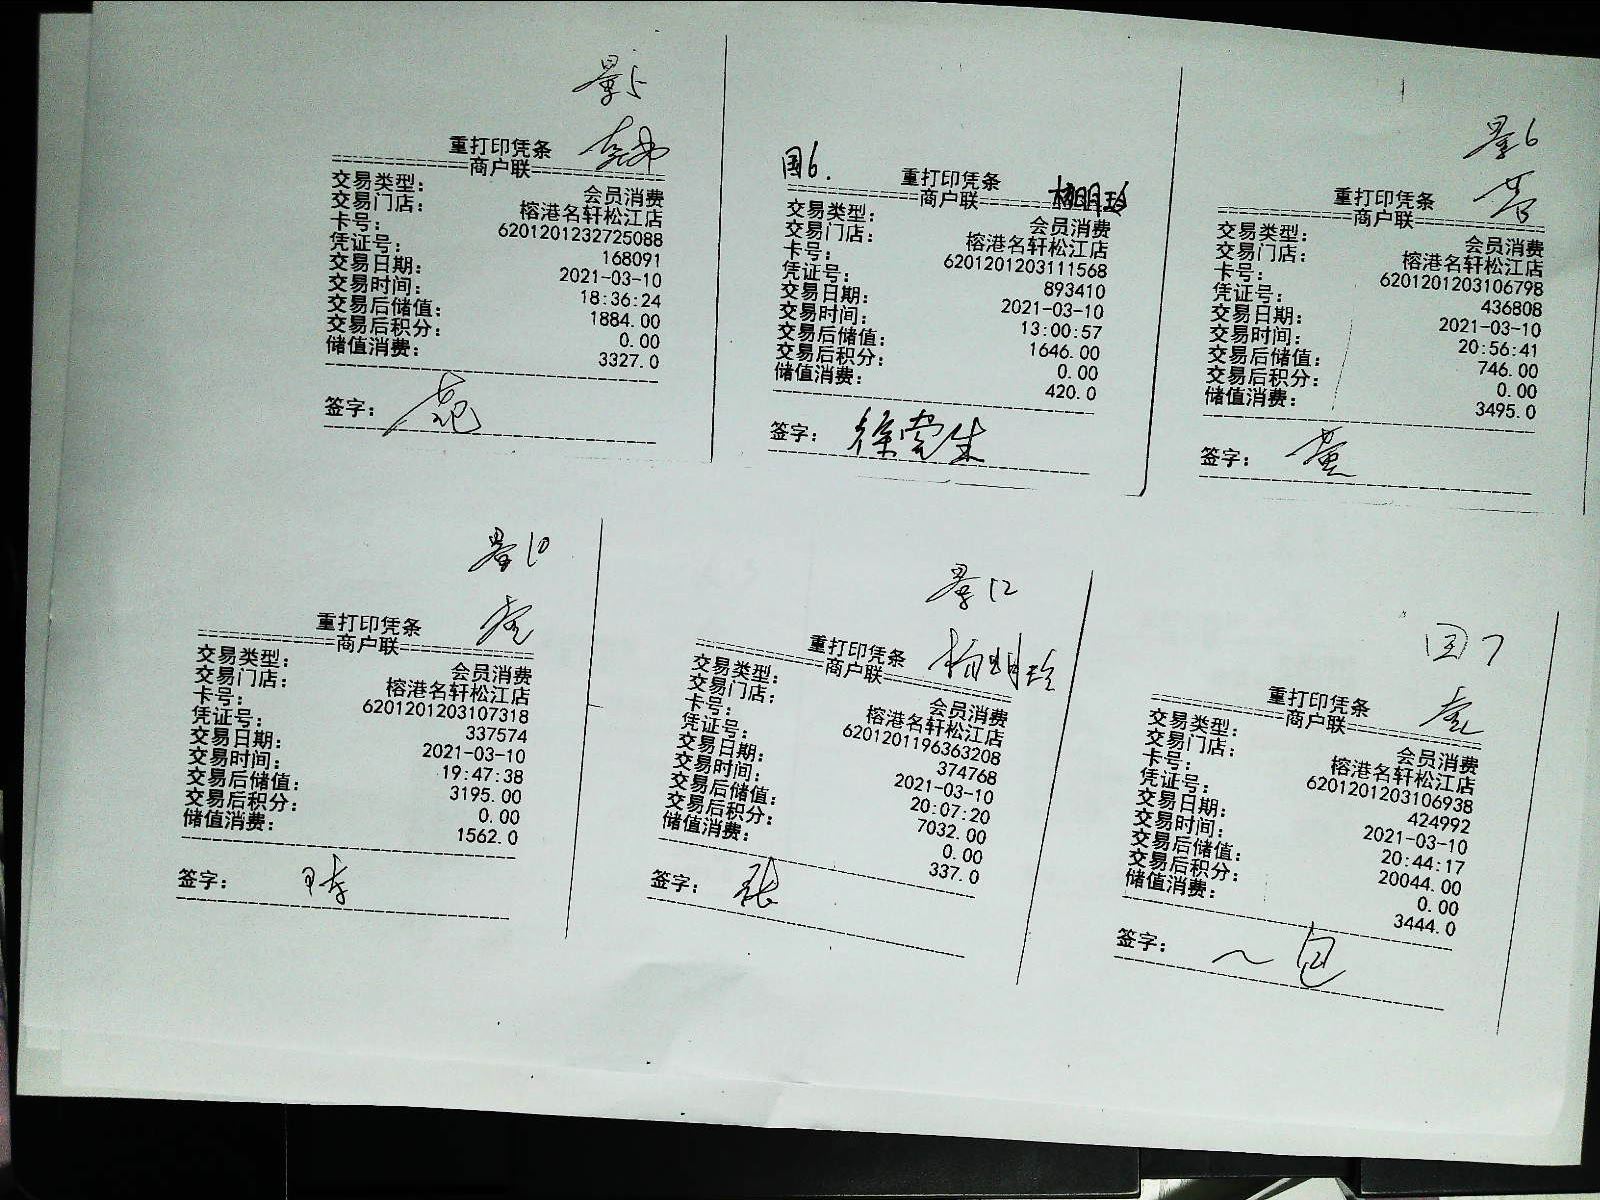 景5
重打印凭条
商户联
交易类型： 会员消费
交易门店： 榕港名轩松江店
卡号： 6201201232725088
凭证号： 168091
交易日期： 2021-03-10
交易时间： 18:36:24
交易后储值： 1884.00
交易后积分： 0.00
储值消费： 3327.0
签字：
国6.
重打印凭条
商户联 杨明玲
交易类型： 会员消费
交易门店： 榕港名轩松江店
卡号： 6201201203111568
凭证号： 893410
交易日期： 2021-03-10
交易时间： 13:00:57
交易后储值： 1646.00
交易后积分： 0.00
储值消费： 420.0
签字：
景6
重打印凭条
商户联
交易类型： 会员消费
交易门店： 榕港名轩松江店
卡号： 6201201203106798
凭证号： 436808
交易日期： 2021-03-10
交易时间： 20:56:41
交易后储值： 746.00
交易后积分： 0.00
储值消费： 3495.0
签字：
景10
重打印凭条
商户联
交易类型： 会员消费
交易门店： 榕港名轩松江店
卡号： 6201201203107318
凭证号： 337574
交易日期： 2021-03-10
交易时间： 19:47:38
交易后储值： 3195.00
交易后积分： 0.00
储值消费： 1562.0
签字：
景12
重打印凭条 杨明玲
商户联
交易类型： 会员消费
交易门店： 榕港名轩松江店
卡号： 6201201196363208
凭证号： 374768
交易日期： 2021-03-10
交易时间： 20:07:20
交易后储值： 7032.00
交易后积分： 0.00
储值消费： 337.0
签字： 张
国7
重打印凭条
商户联
交易类型： 会员消费
交易门店： 榕港名轩松江店
卡号： 6201201203106938
凭证号： 424992
交易日期： 2021-03-10
交易时间： 20:44:17
交易后储值： 20044.00
交易后积分： 0.00
储值消费： 3444.0
签字：